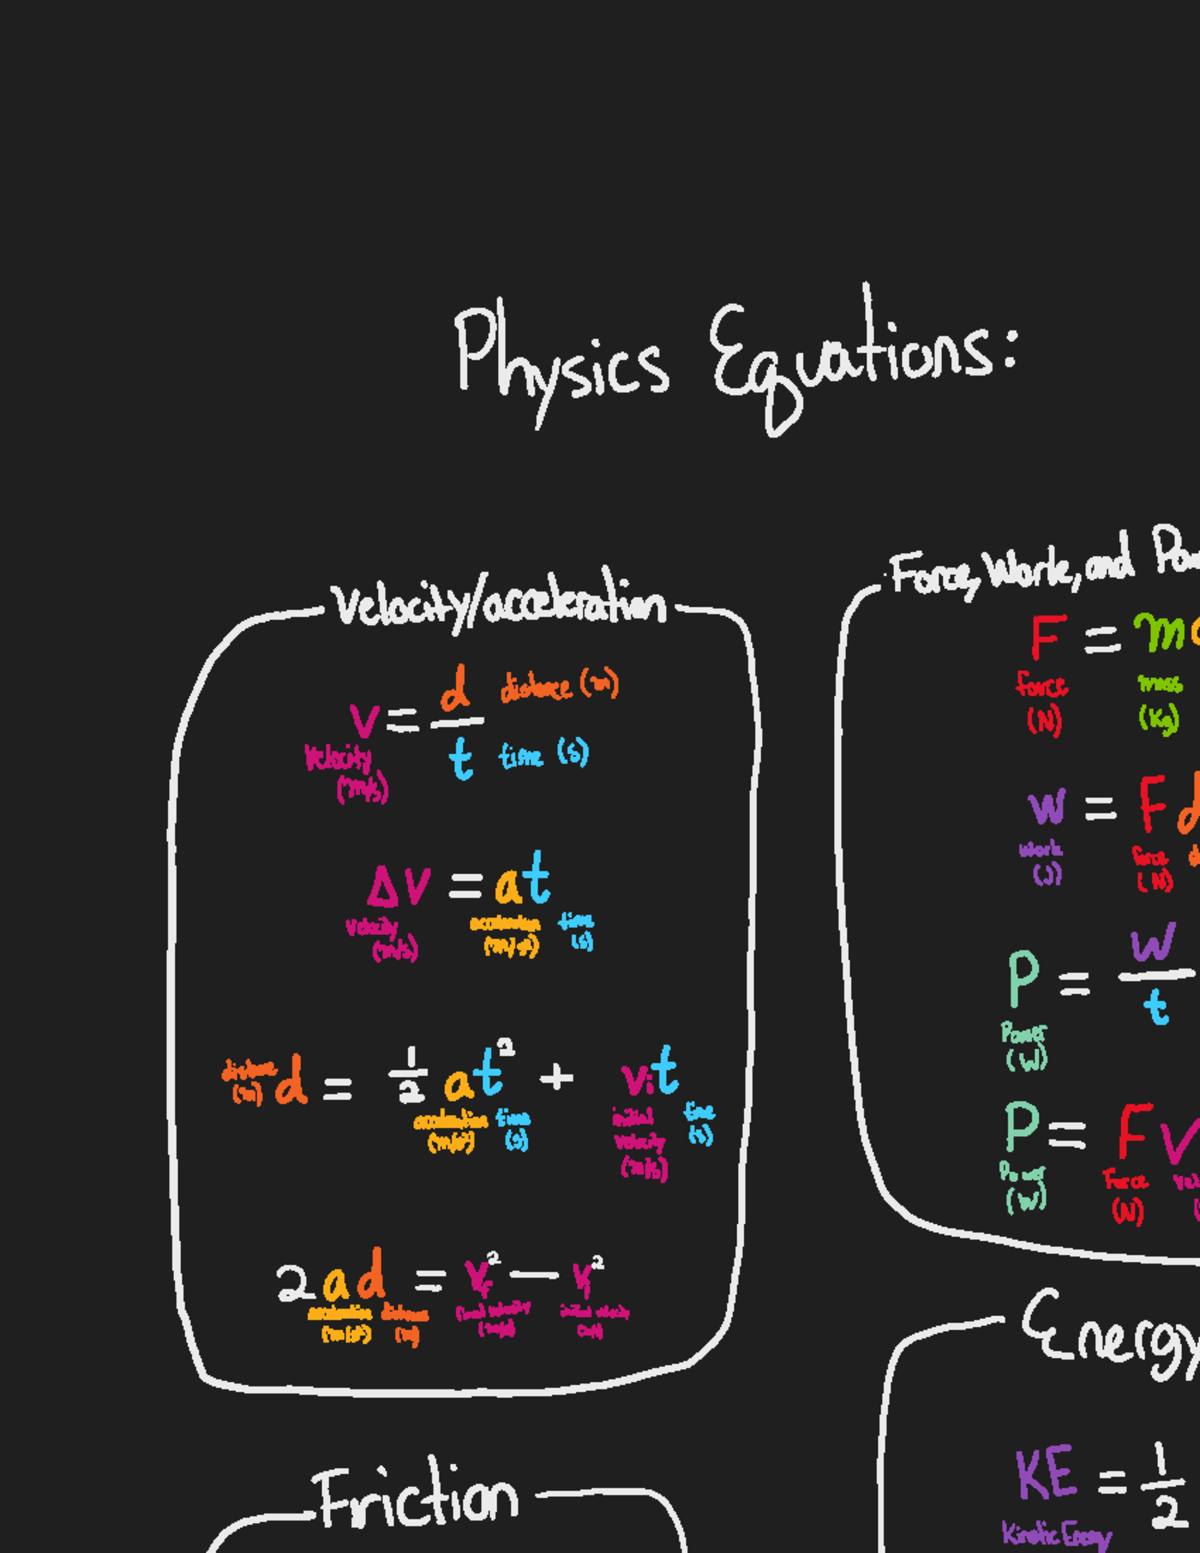 Physics Equations:
Velocity/acceleration
v = d/t
distance (m)
time (s)
Velocity
(m/s)
Δv = at
velocity
(m/s)
acceleration
(m/s²)
time
(s)
distance
(m)
d = 1/2 at² + vᵢt
acceleration
(m/s²)
time
(s)
initial
velocity
(m/s)
time
(s)
2ad = v_f² - vᵢ²
acceleration
(m/s²)
distance
(m)
final velocity
(m/s)
initial velocity
(m/s)
Friction
Force, Work, and
F = m
force
(N)
mass
(Kg)
W = F d
work
(J)
force
(N)
P = W/t
Power
(W)
P = F V
Power
(W)
Force
(N)
Energy
KE = 1/2
Kinetic Energy